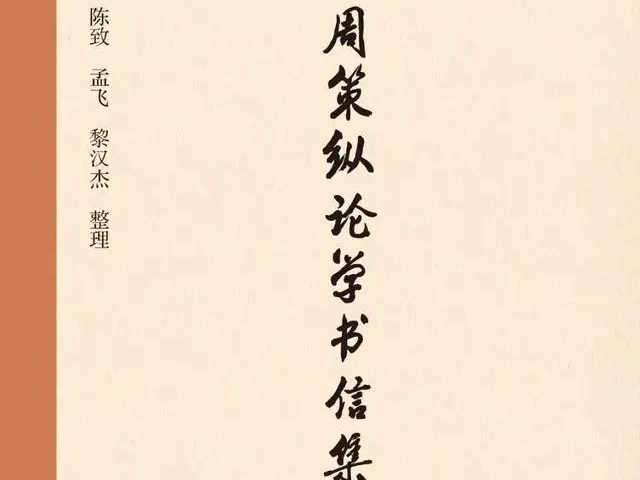 周策纵论学书信集
陈致 孟飞 黎汉杰 整理